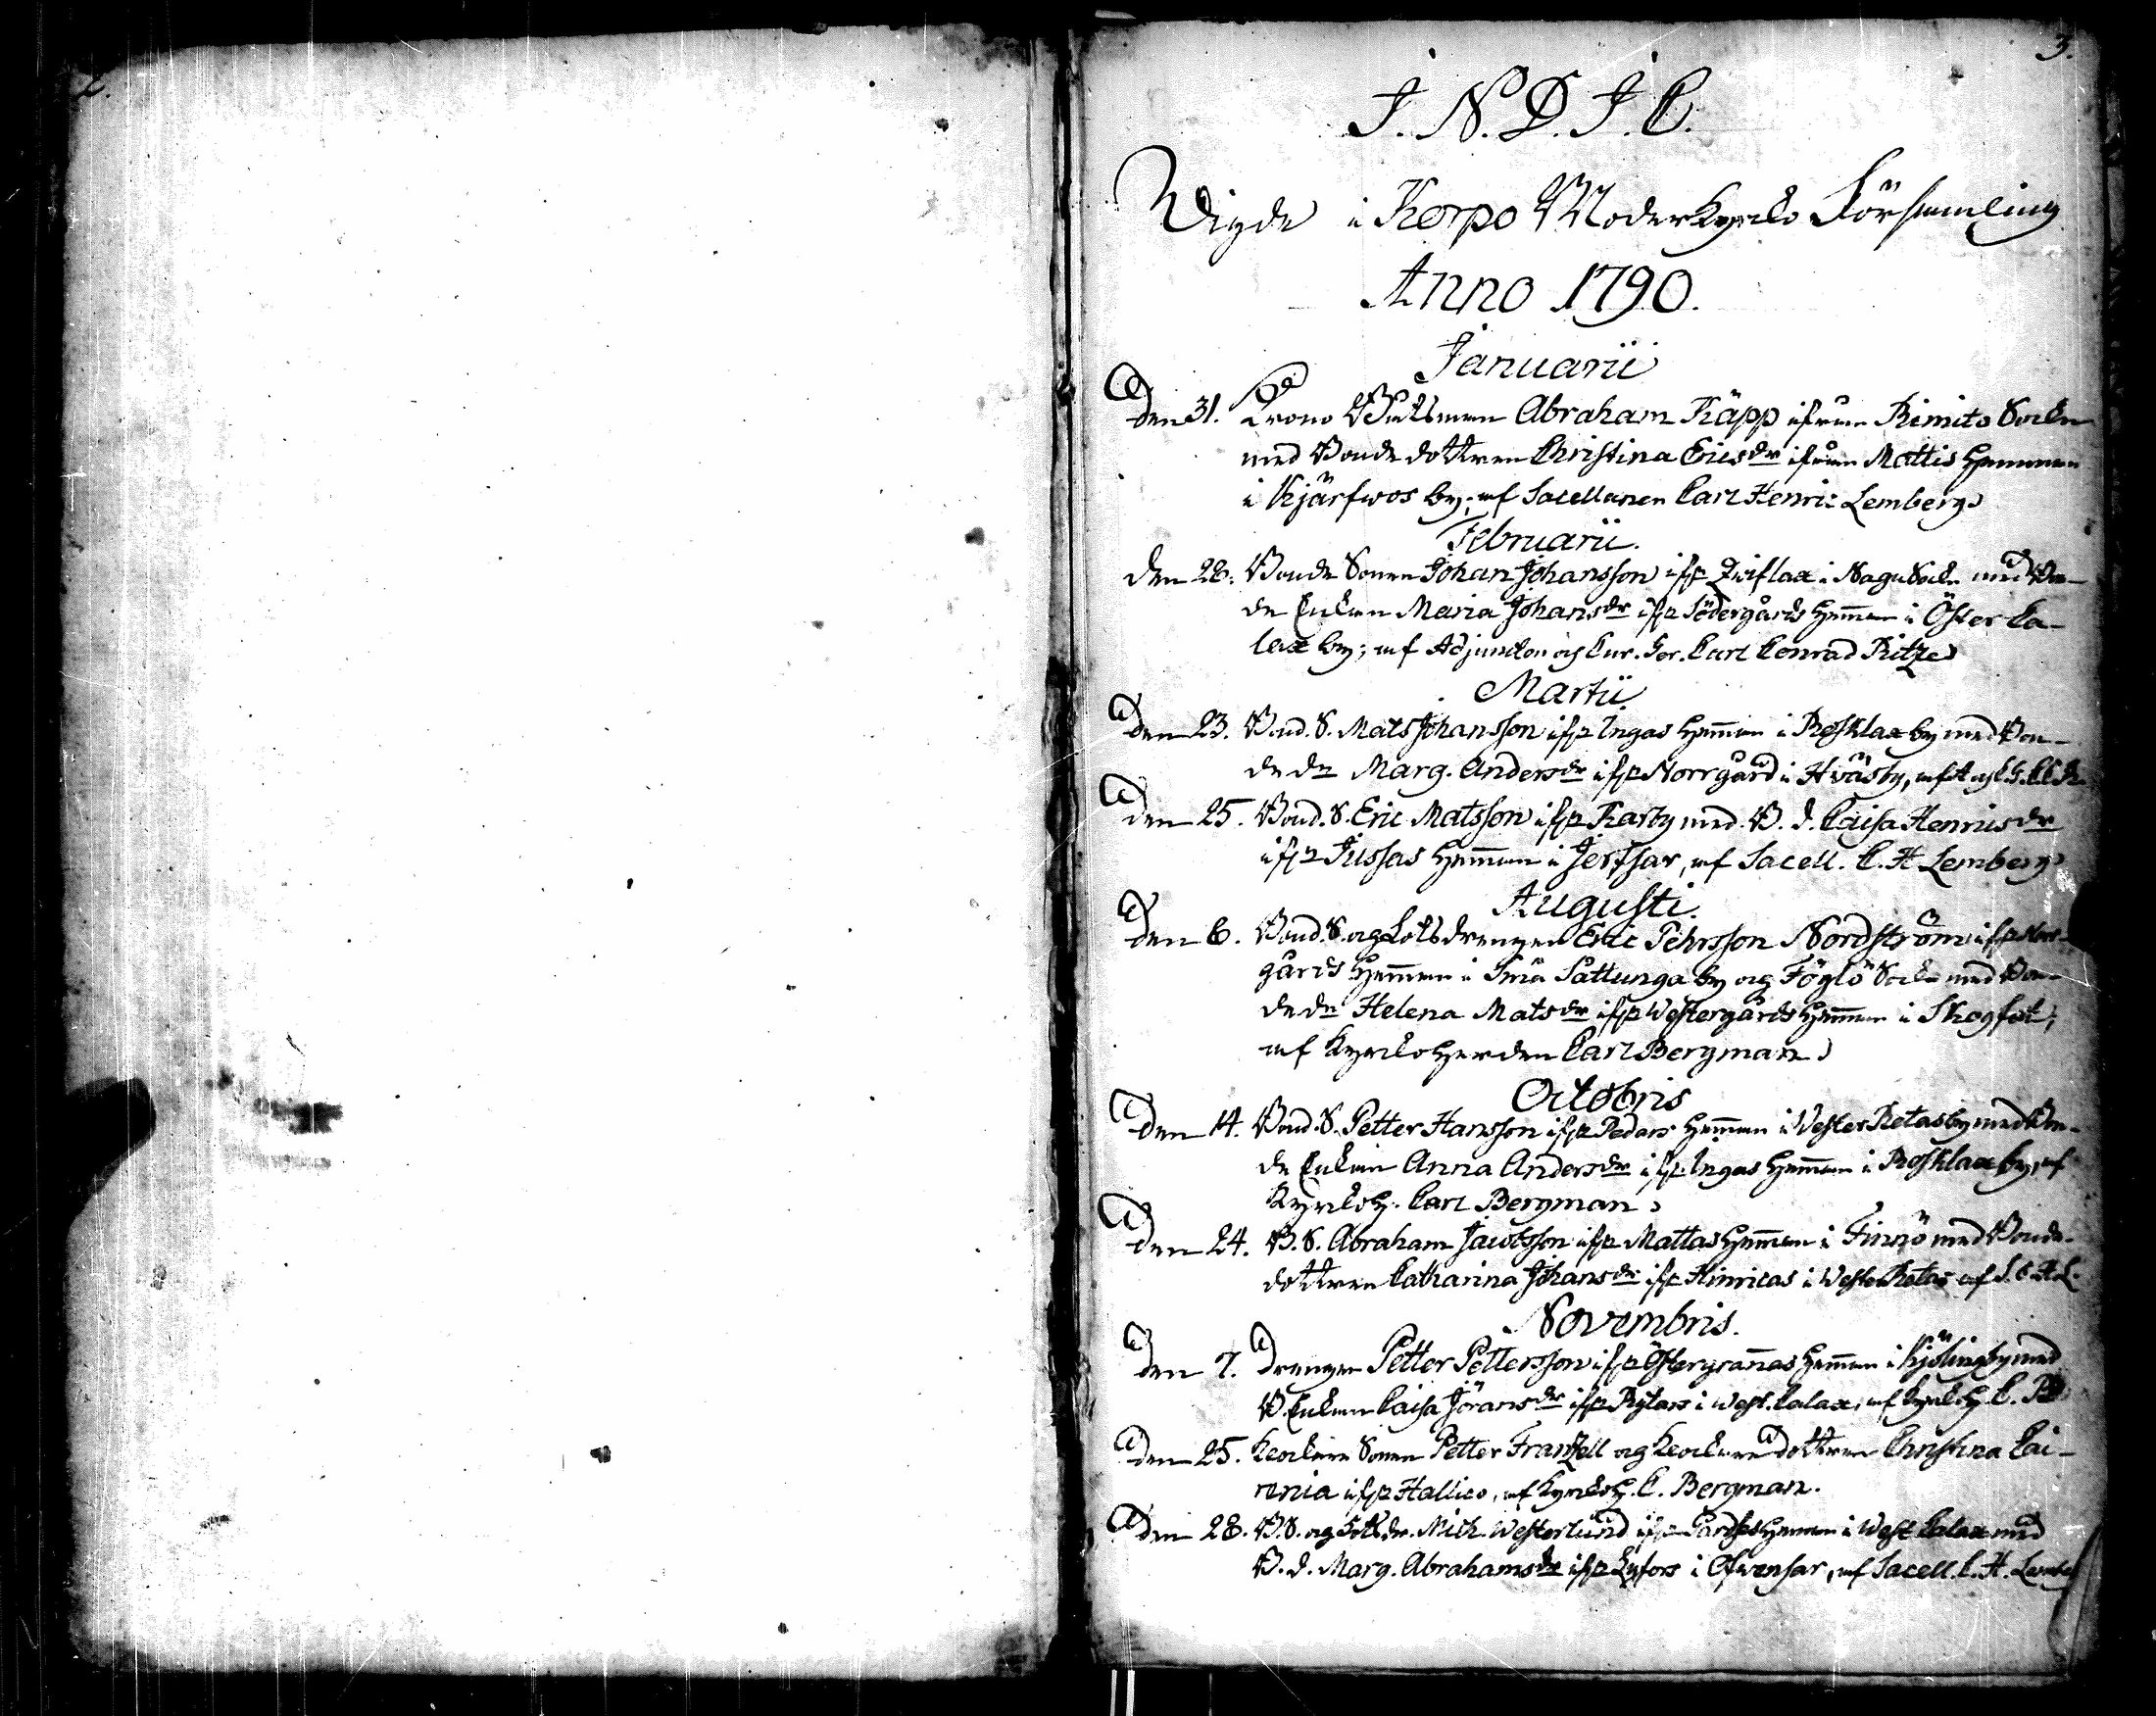 2.
3.
J. N. D. J. C.
Wigde i Korpo Moderkyrko Församling
Anno 1790.
Januarii
Den 31. Krono Båtsman Abraham Käpp ifrån Rimito Sockn
med Bonde dottren Christina Ericsdr ifrån Mattis Hemman
i Kjärfwos by; af Sacellanen Carl Henric Lemberg
Februarii.
Den 28. Bonde Sonen Johan Johansson ifr Zwiflax i Nagu Sockn med Bon-
de Enkan Maria Johansdr ifr Södergårds Hemman i Öster Ca-
lax by; af Adjuncten och Cur. Ger. Carl Conrad Ritze
Martii.
Den 23. Bond. S. Mats Johansson ifr Ingas Hemman i Rosklax by med Bon-
de dr Marg. Andersdr ifr Norrgård i Hväsby, af
Den 25. Bond. S. Eric Matsson ifr Karby med B. d. Caisa Henricsdr
ifr Jussas Hemman i Jerfsar, af Sacell. C. H. Lemberg
Augusti.
Den 6. Bond. S. och Lotsdrengen Eric Pehrsson Nordström ifr Nor-
gårds Hemman i Små Sattunga by och Föglö Sockn med Bon-
de dr Helena Matsdr ifr Westergårds Hemman i Skogfot;
af Kyrkoherden Carl Bergman
Octobris
Den 14. Bond. S. Petter Hansson ifr Pedars Hemman i Wester Retas by med Bon-
de Enkan Anna Andersdr ifr Ingas Hemman i Rosklax by, af
Kyrkoh. Carl Bergman
Den 24. B. S. Abraham Jacobsson ifr Mattas Hemman i Finnö med Bonde-
dottren Catharina Johansdr ifr Hinricas i Wester Retas af S. C. H. L.
Novembris.
Den 7. Drengen Petter Pettersson ifr Östergrannas Hemman i Kjölingby med
B. Enkan Caisa Jöransdr ifr Rytars i West. Calax, af Kyrkoh. C. B.
Den 25. Klockare Sonen Petter Frantzell och Klockare Dottren Christina Cai-
renia ifr Hallico, af Kyrkoh. C. Bergman.
Den 28. B. S. och Lotsdr. Mich. Westerlund ifr Hemman i West Calax med
B. d. Marg. Abrahamsdr ifr Lyfors i Öfvensar, af Sacell. C. H. Lemberg